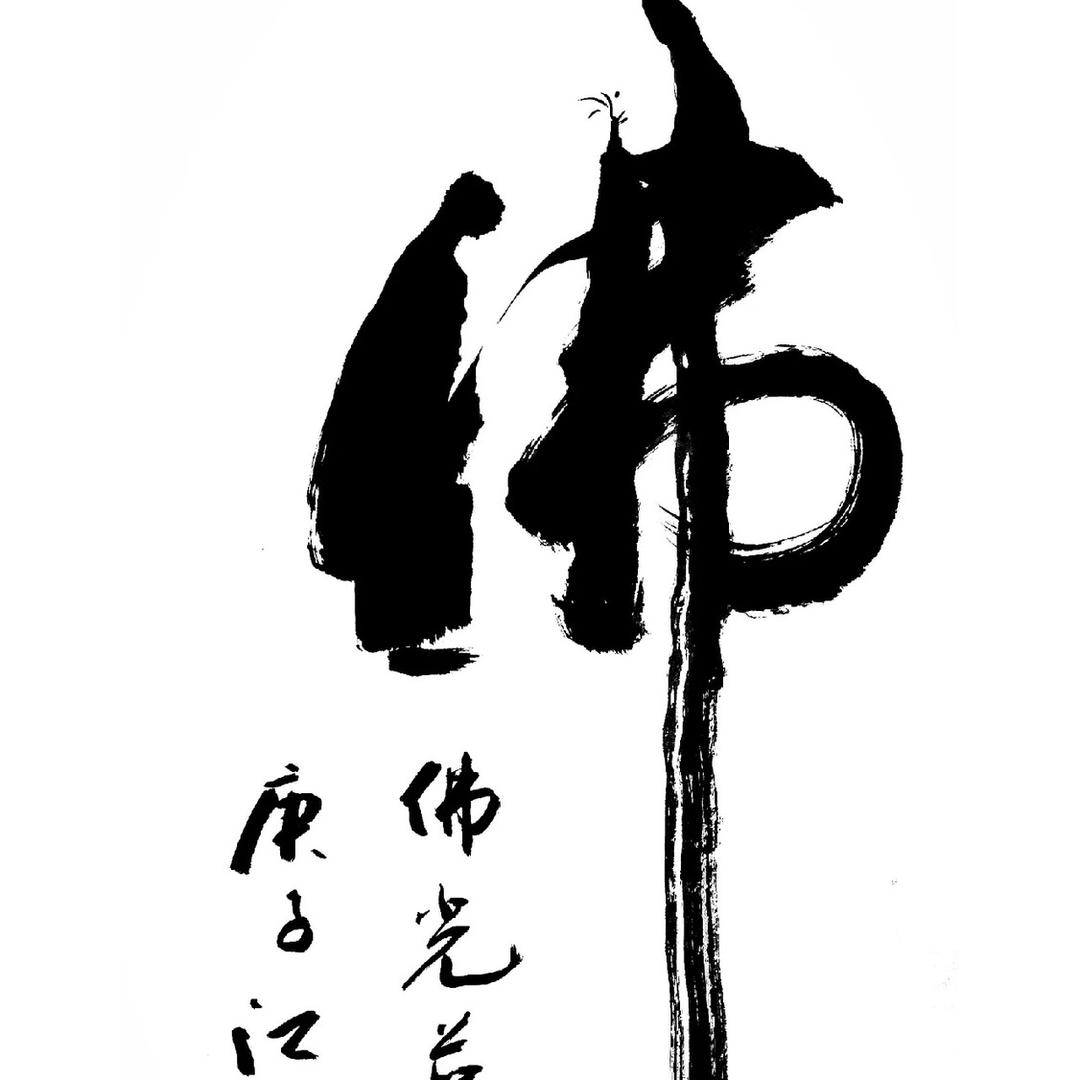 佛
佛光
庚子江